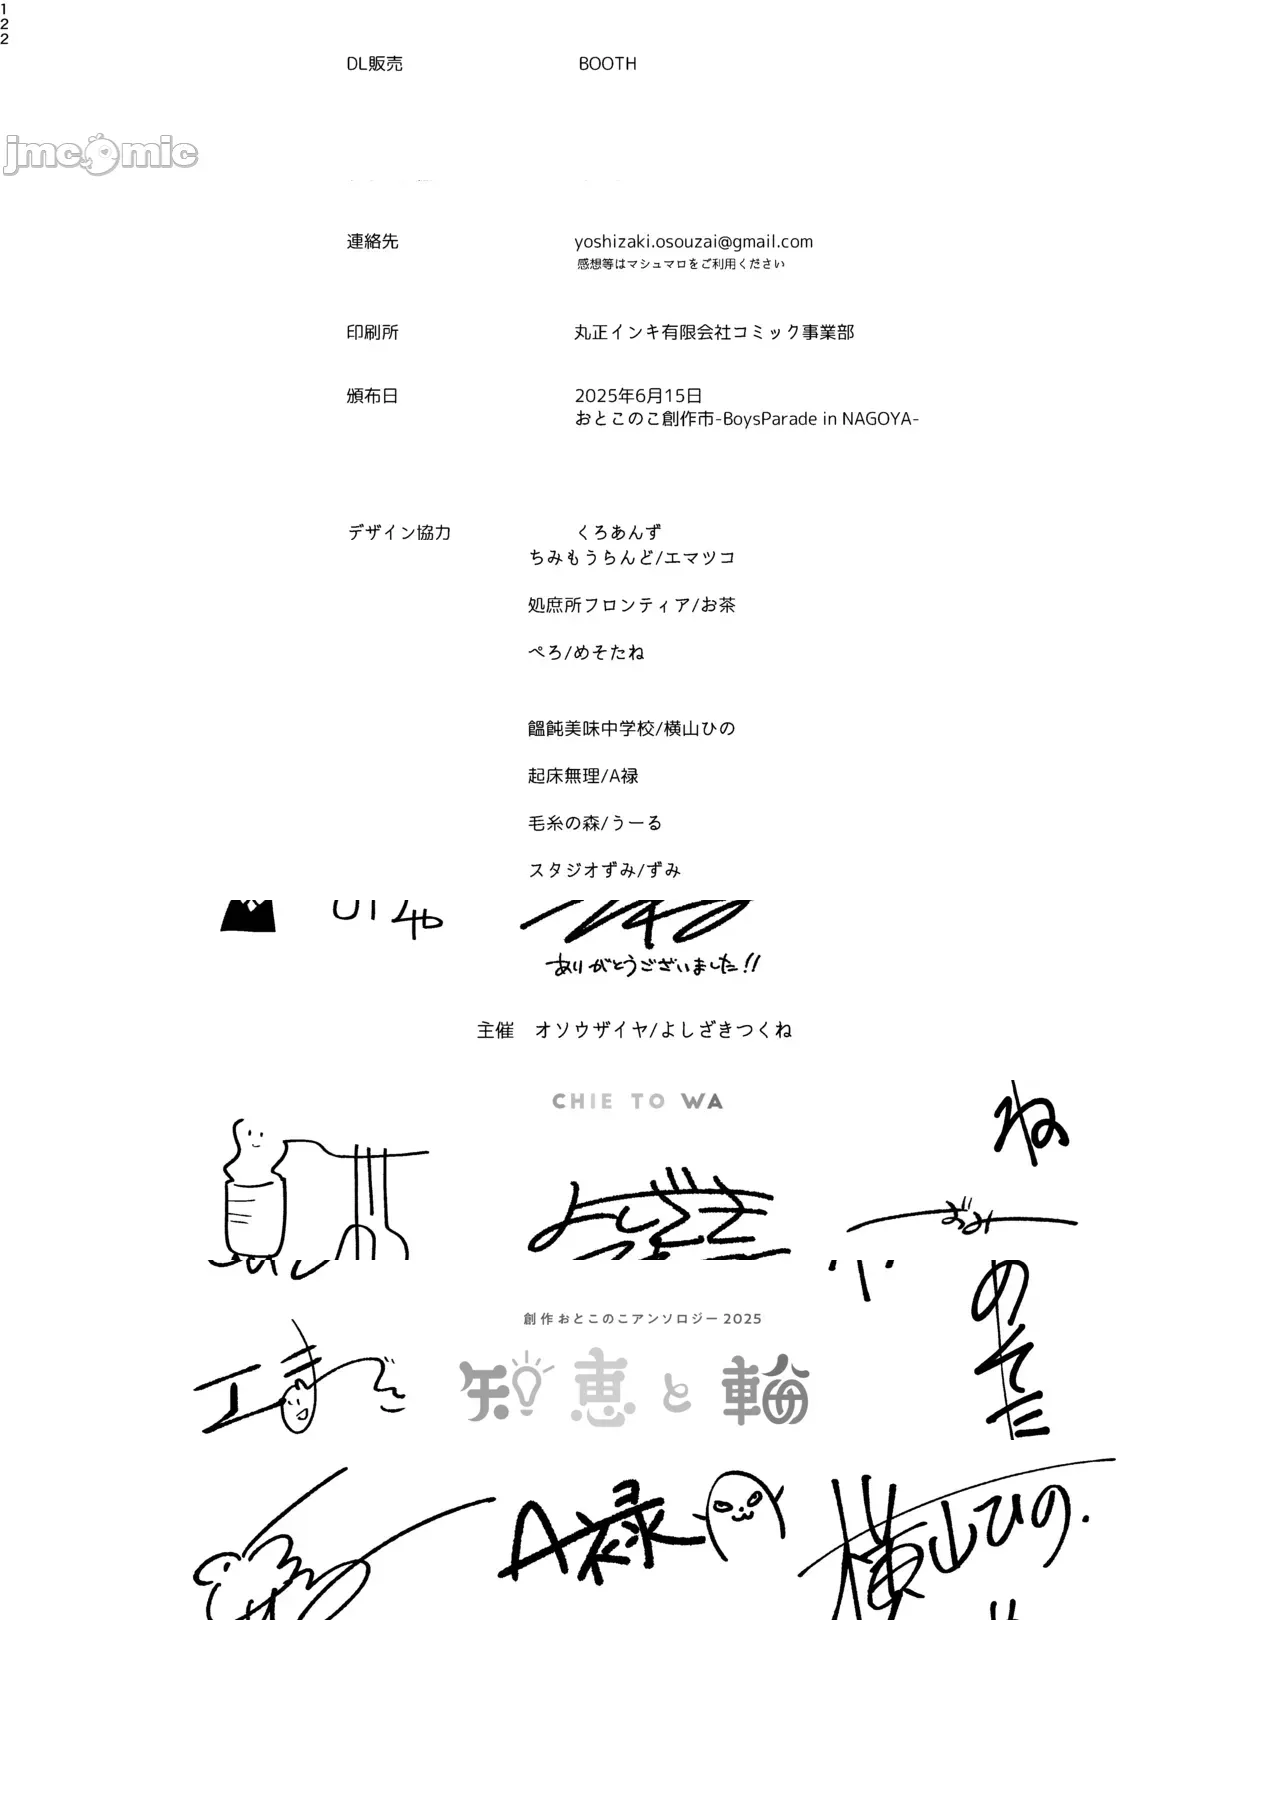 1
2
2
DL販売 BOOTH
jmcomic
連絡先 yoshizaki.osouzai@gmail.com
感想等はマシュマロをご利用ください
印刷所 丸正インキ有限会社コミック事業部
頒布日 2025年6月15日
おとこのこ創作市-BoysParade in NAGOYA-
デザイン協力 くろあんず
ちみもうらんど/エマツコ
処庶所フロンティア/お茶
ぺろ/めそたね
饂飩美味中学校/横山ひの
起床無理/A禄
毛糸の森/うーる
スタジオずみ/ずみ
ありがとうございました!!
主催 オソウザイヤ/よしざきつくね
CHIE TO WA
ね
よしざき
ずみ
めそた
創作おとこのこアンソロジー2025
知恵と輪
A禄
横山ひの.